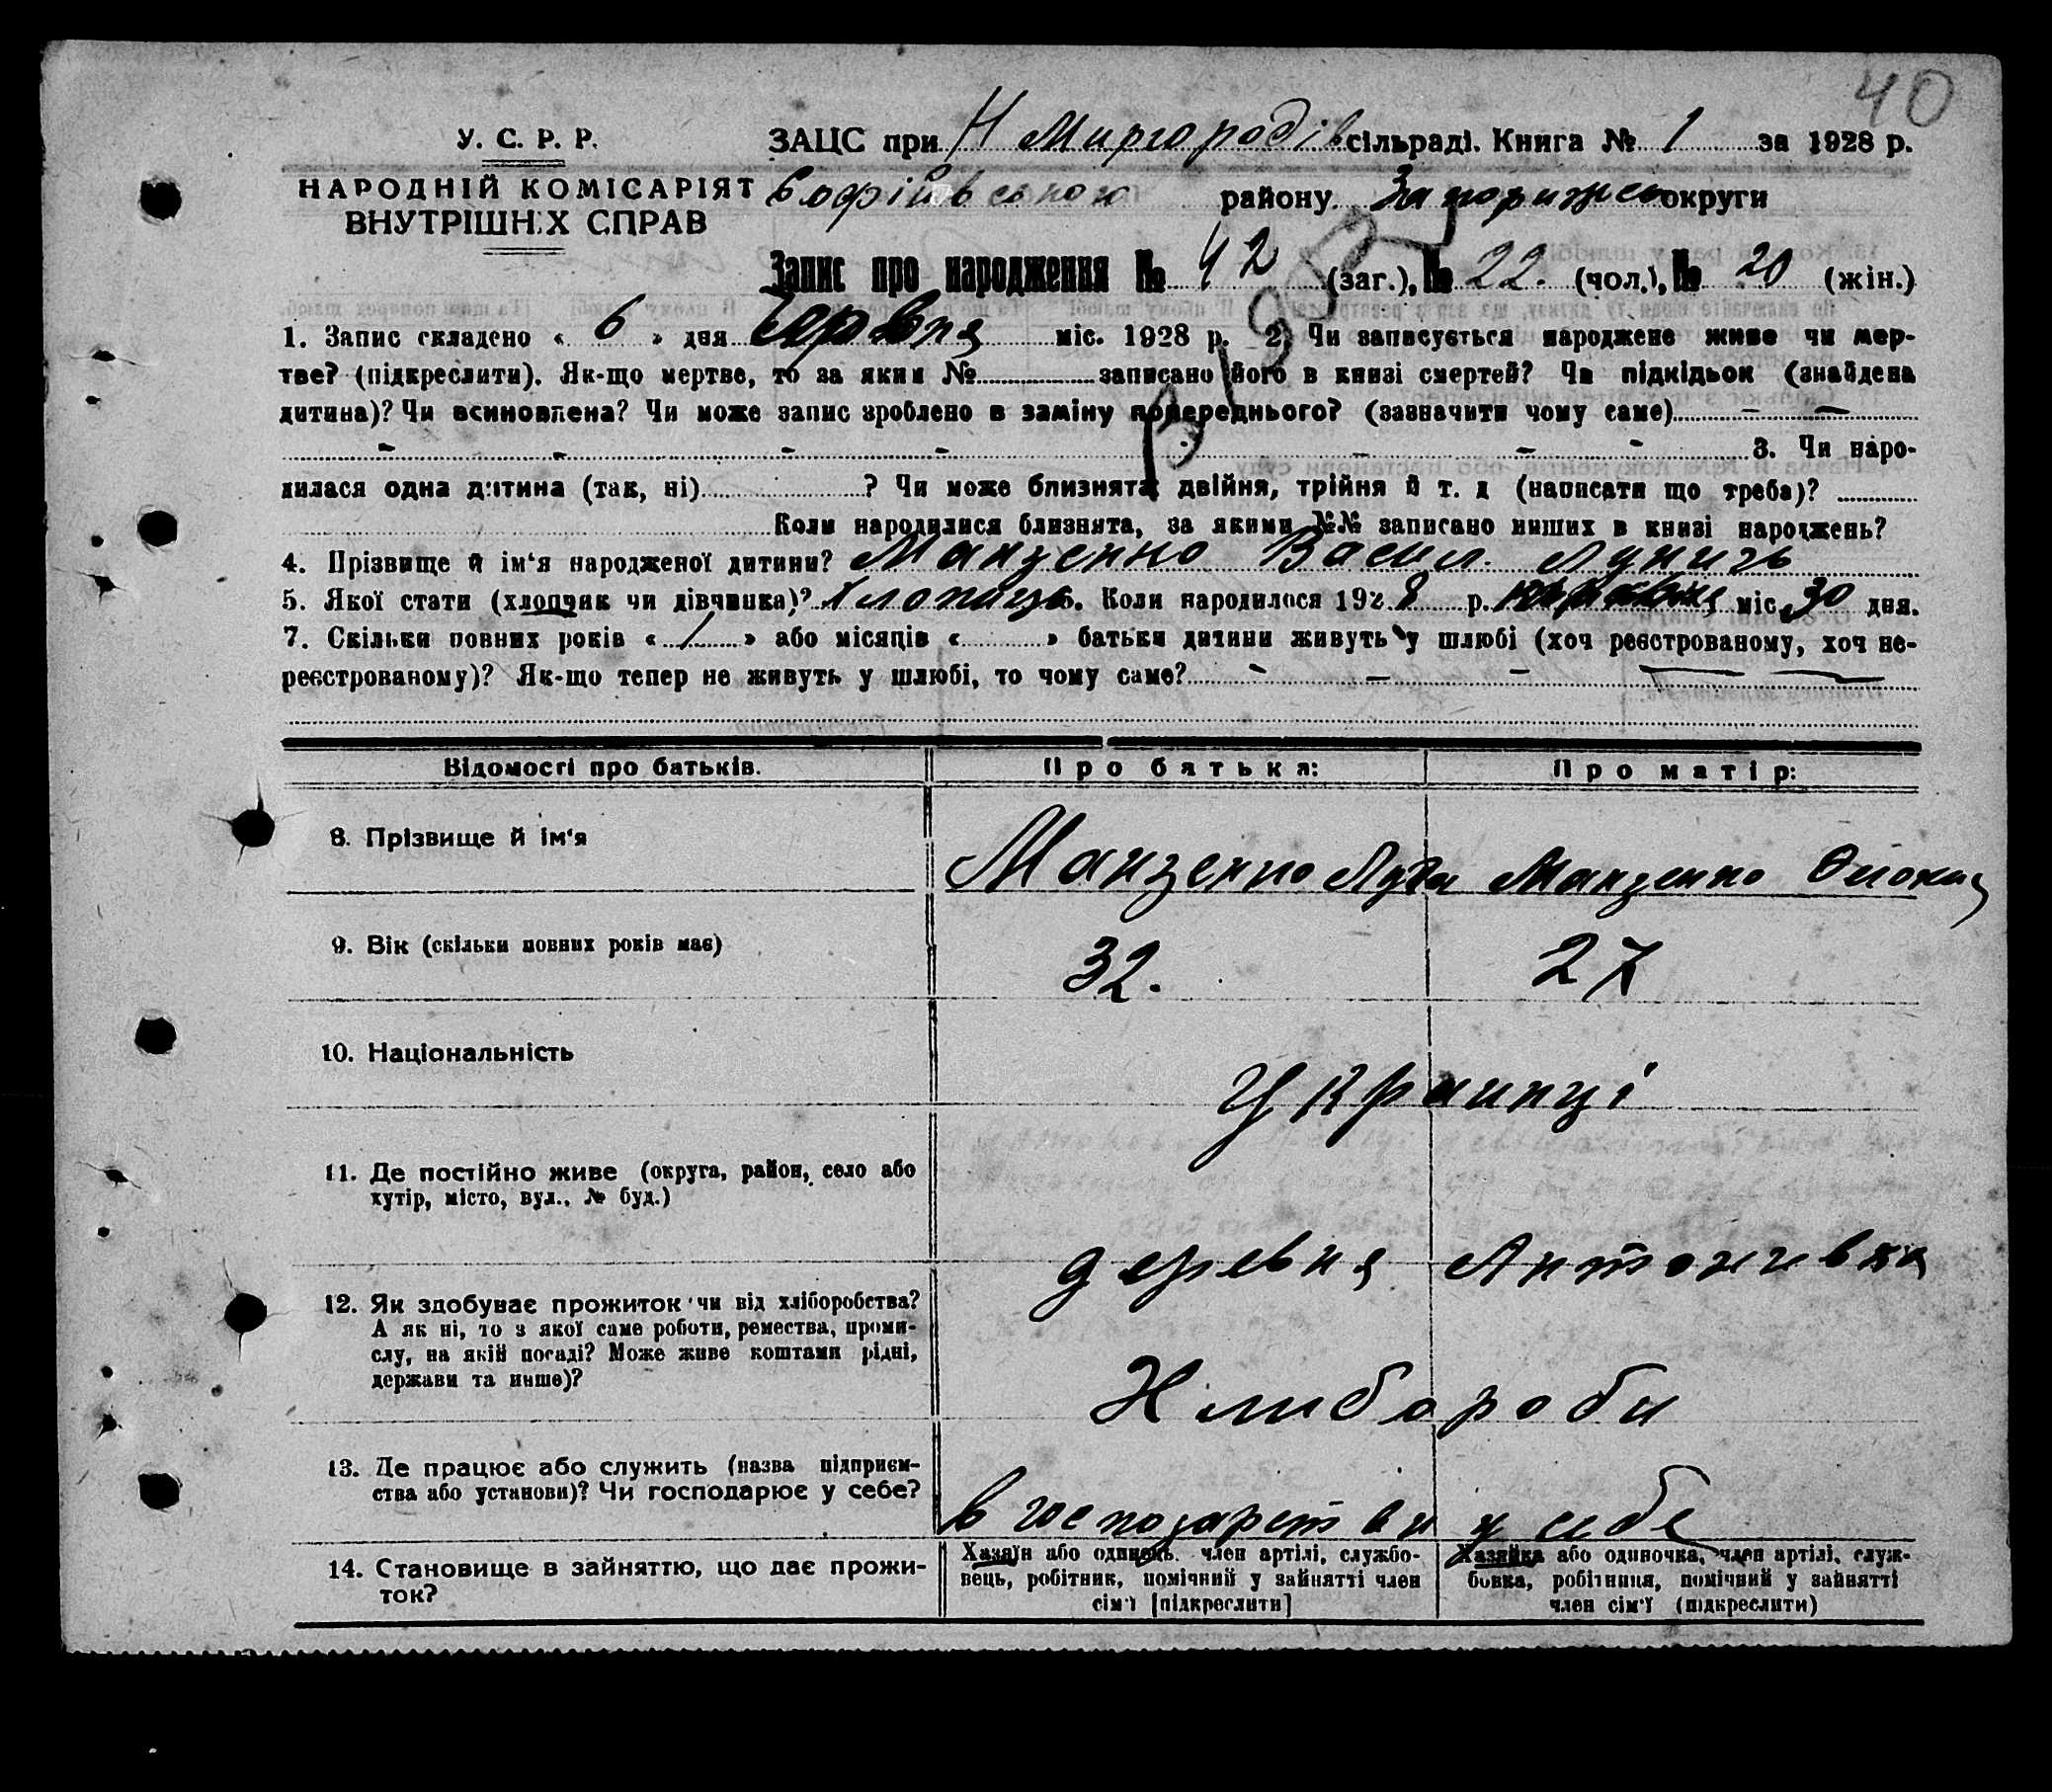 40
У. С. Р. Р.
НАРОДНІЙ КОМІСАРІЯТ
ВНУТРІШНІХ СПРАВ
ЗАЦС при Н Миргородів сільраді. Книга № 1 за 1928 р.
Софіївського району Запорижсь округи
Запис про народження № 42 (заг.), № 22. (чол.), № 20 (жін.)
1. Запис складено « 6 » дня Червня міс. 1928 р. 2. Чи записується народжене живе чи мер-
тве? (підкреслити). Як-що мертве, то за яким № записано його в книзі смертей? Чи підкідьок (знайдена
дитина)? Чи всиновлена? Чи може запис зроблено в заміну попереднього? (зазначити чому саме) — —
- - - - - - - 3. Чи наро-
дилася одна дитина (так, ні) ? Чи може близнята, двійня, трійня й т. д (написати що треба)?
Коли народилися близнята, за якими №№ записано инших в книзі народжень?
4. Прізвище й ім‘я народженої дитини? Манзенко Васил.
5. Якої стати (хлопчик чи дівчинка)? Хлопиць 6. Коли народилося 1928 р. міс. 30 дня.
7. Скільки повних років « 1 » або місяців « » батьки дитини живуть у шлюбі (хоч реєстрованому, хоч не-
реєстрованому)? Як-що тепер не живуть у шлюбі, то чому саме? - — -
Відомості про батьків.
Про батька:
Про матір:
8. Прізвище й ім‘я
Манзенко Лука
Манзенко
9. Вік (скільки повних років має)
32.
27
10. Національність
Украинці
11. Де постійно живе (округа, район, село або
хутір, місто, вул., № буд.)
деревня Антоновка
12. Як здобуває прожиток чи від хліборобства?
А як ні, то з якої саме роботи, ремества, проми-
слу, на якій посаді? Може живе коштами рідні,
держави та инше)?
Хлибороби
13. Де працює або служить (назва підприєм-
ства або установи)? Чи господарює у себе?
в господарстви у себе
14. Становище в зайняттю, що дає прожи-
ток?
Хазяїн або одинець. член артілі, службо-
вець, робітник, помічний у зайнятті член
сім‘ї [підкреслити]
Хазяйка або одиночка, член артілі, служ-
бовка, робітниця, помічний у зайнятті
член сім‘ї (підкреслити)